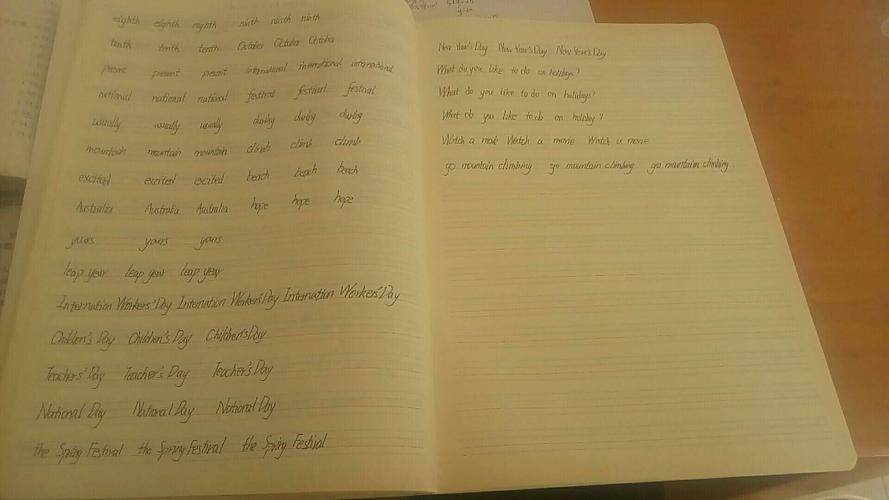 eighth eighth eighth ninth ninth ninth
tenth tenth tenth October October October
present present present international international international
national national national festival festival festival
usually usually usually during during during
mountain mountain mountain climb climb climb
excited excited excited beach beach beach
Australia Australia Australia hope hope hope
yours yours yours
leap year leap year leap year
Internation Workers' Day Internation Workers' Day Internation Workers' Day
Children's Day Children's Day Children's Day
Teachers' Day Teacher's Day Teacher's Day
National Day National Day National Day
the Spring Festival the Spring Festival the Spring Festival
New Year's Day New Year's Day New Year's Day
What do you like to do on holidays?
What do you like to do on holidays?
What do you like to do on holiday?
Watch a movie Watch a movie Watch a movie
go mountain climbing go mountain climbing go mountain climbing